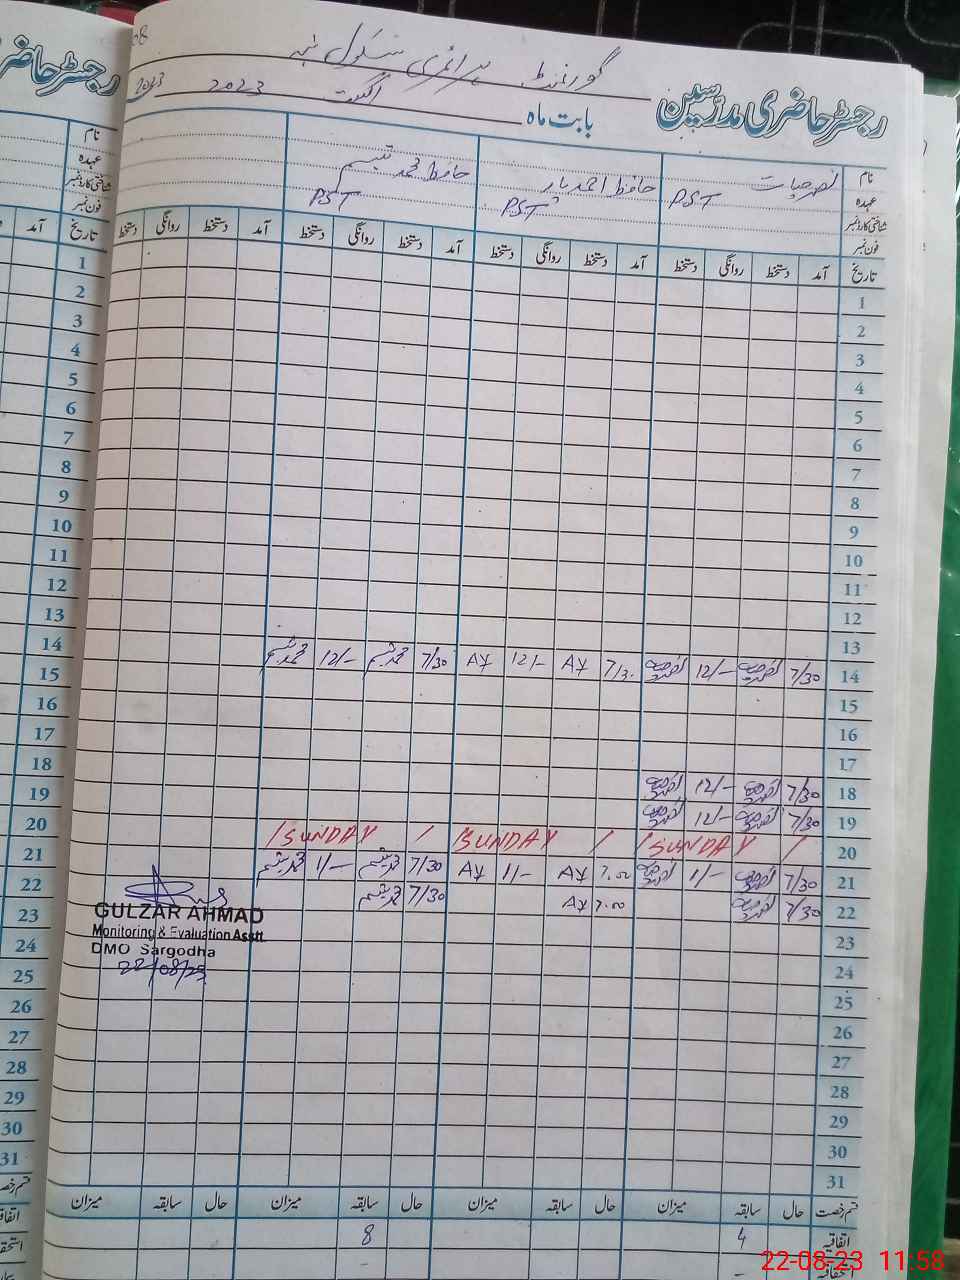 08
گورنمنٹ پرائمری سکول
رجسٹر حاضری مدرسین
بابت ماہ اگست 2023
رجسٹر حاضری
2023
نام نصر حیات حافظ احمد یار حافظ محمد تبسم
عہدہ PST PST PST
شناختی کارڈ نمبر
فون نمبر
تاریخ آمد دستخط روانگی دستخط آمد دستخط روانگی دستخط آمد دستخط روانگی دستخط آمد دستخط روانگی دستخط
نام
عہدہ
شناختی کارڈ نمبر
فون نمبر
تاریخ آمد
1
2
3
4
5
6
7
8
9
10
11
12
13
14 7/30 12/- 7/30 AY 12/- AY 7/30 12/-
15
16
17
18 7/30 12/-
19 7/30 12/-
20 / SUNDAY / / SUNDAY / / SUNDAY /
21 7/30 1/- 7.00 AY 1/- AY 7/30 1/-
22 7/30 7.00 AY 7/30
23
24
25
26
27
28
29
30
31
GULZAR AHMAD
Monitoring & Evaluation Asstt.
DMO Sargodha
22/08/23
1
2
3
4
5
6
7
8
9
10
11
12
13
14
15
16
17
18
19
20
21
22
23
24
25
26
27
28
29
30
31
قسم رخصت حال سابقہ میزان حال سابقہ میزان حال سابقہ میزان حال سابقہ میزان
اتفاقیہ 4 8
استحقاقیہ - -
22-08-23 11:58